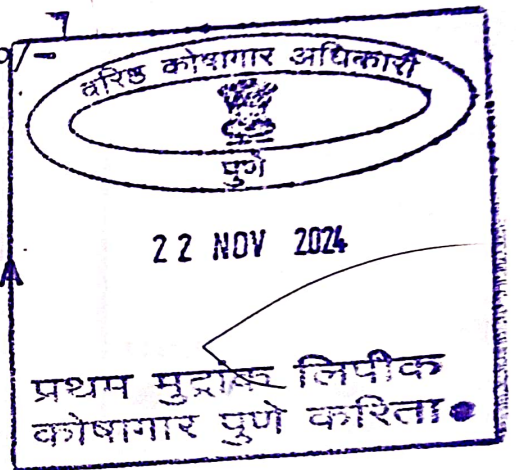 वरिष्ठ कोषागार अधिकारी
पुणे
22 NOV 2024
प्रथम मुद्रांक लिपीक
कोषागार पुणे करिता